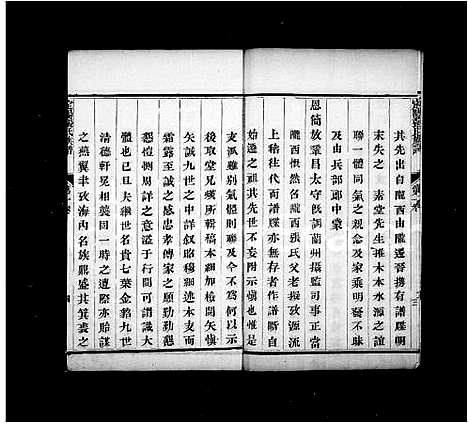 其先出自隴西由隴遷晉攜有譜牒明
末失之 素堂先生推木本水源之誼
以一氣同體之親及於家乘明發不昧
及由兵部郎中蒙
恩簡放鞏昌太守旣調蘭州攝監司事正當
隴西惘然名隴西張氏父老擬攷源流
上稽往代而譜牒亦無存者作譜斷自
始遷之祖其先世不妄附示愼也惟是
支派雖別氣體感通及今不爲何以示
後取堂兄煐所輯稿本細加檢閱矢愼
矢誠九世之中詳叙略穆追水木支而
霜露至誠之感忠孝傳家之願勤勤懇
懇愷惻周詳之意溢于行間可謂識大
體也已夫纘世名貴七葉金貂九世
清德軒冕相襲同一時之盛亦貽謀
之燕翼聿攷海內名族鼎盛其箕裘之